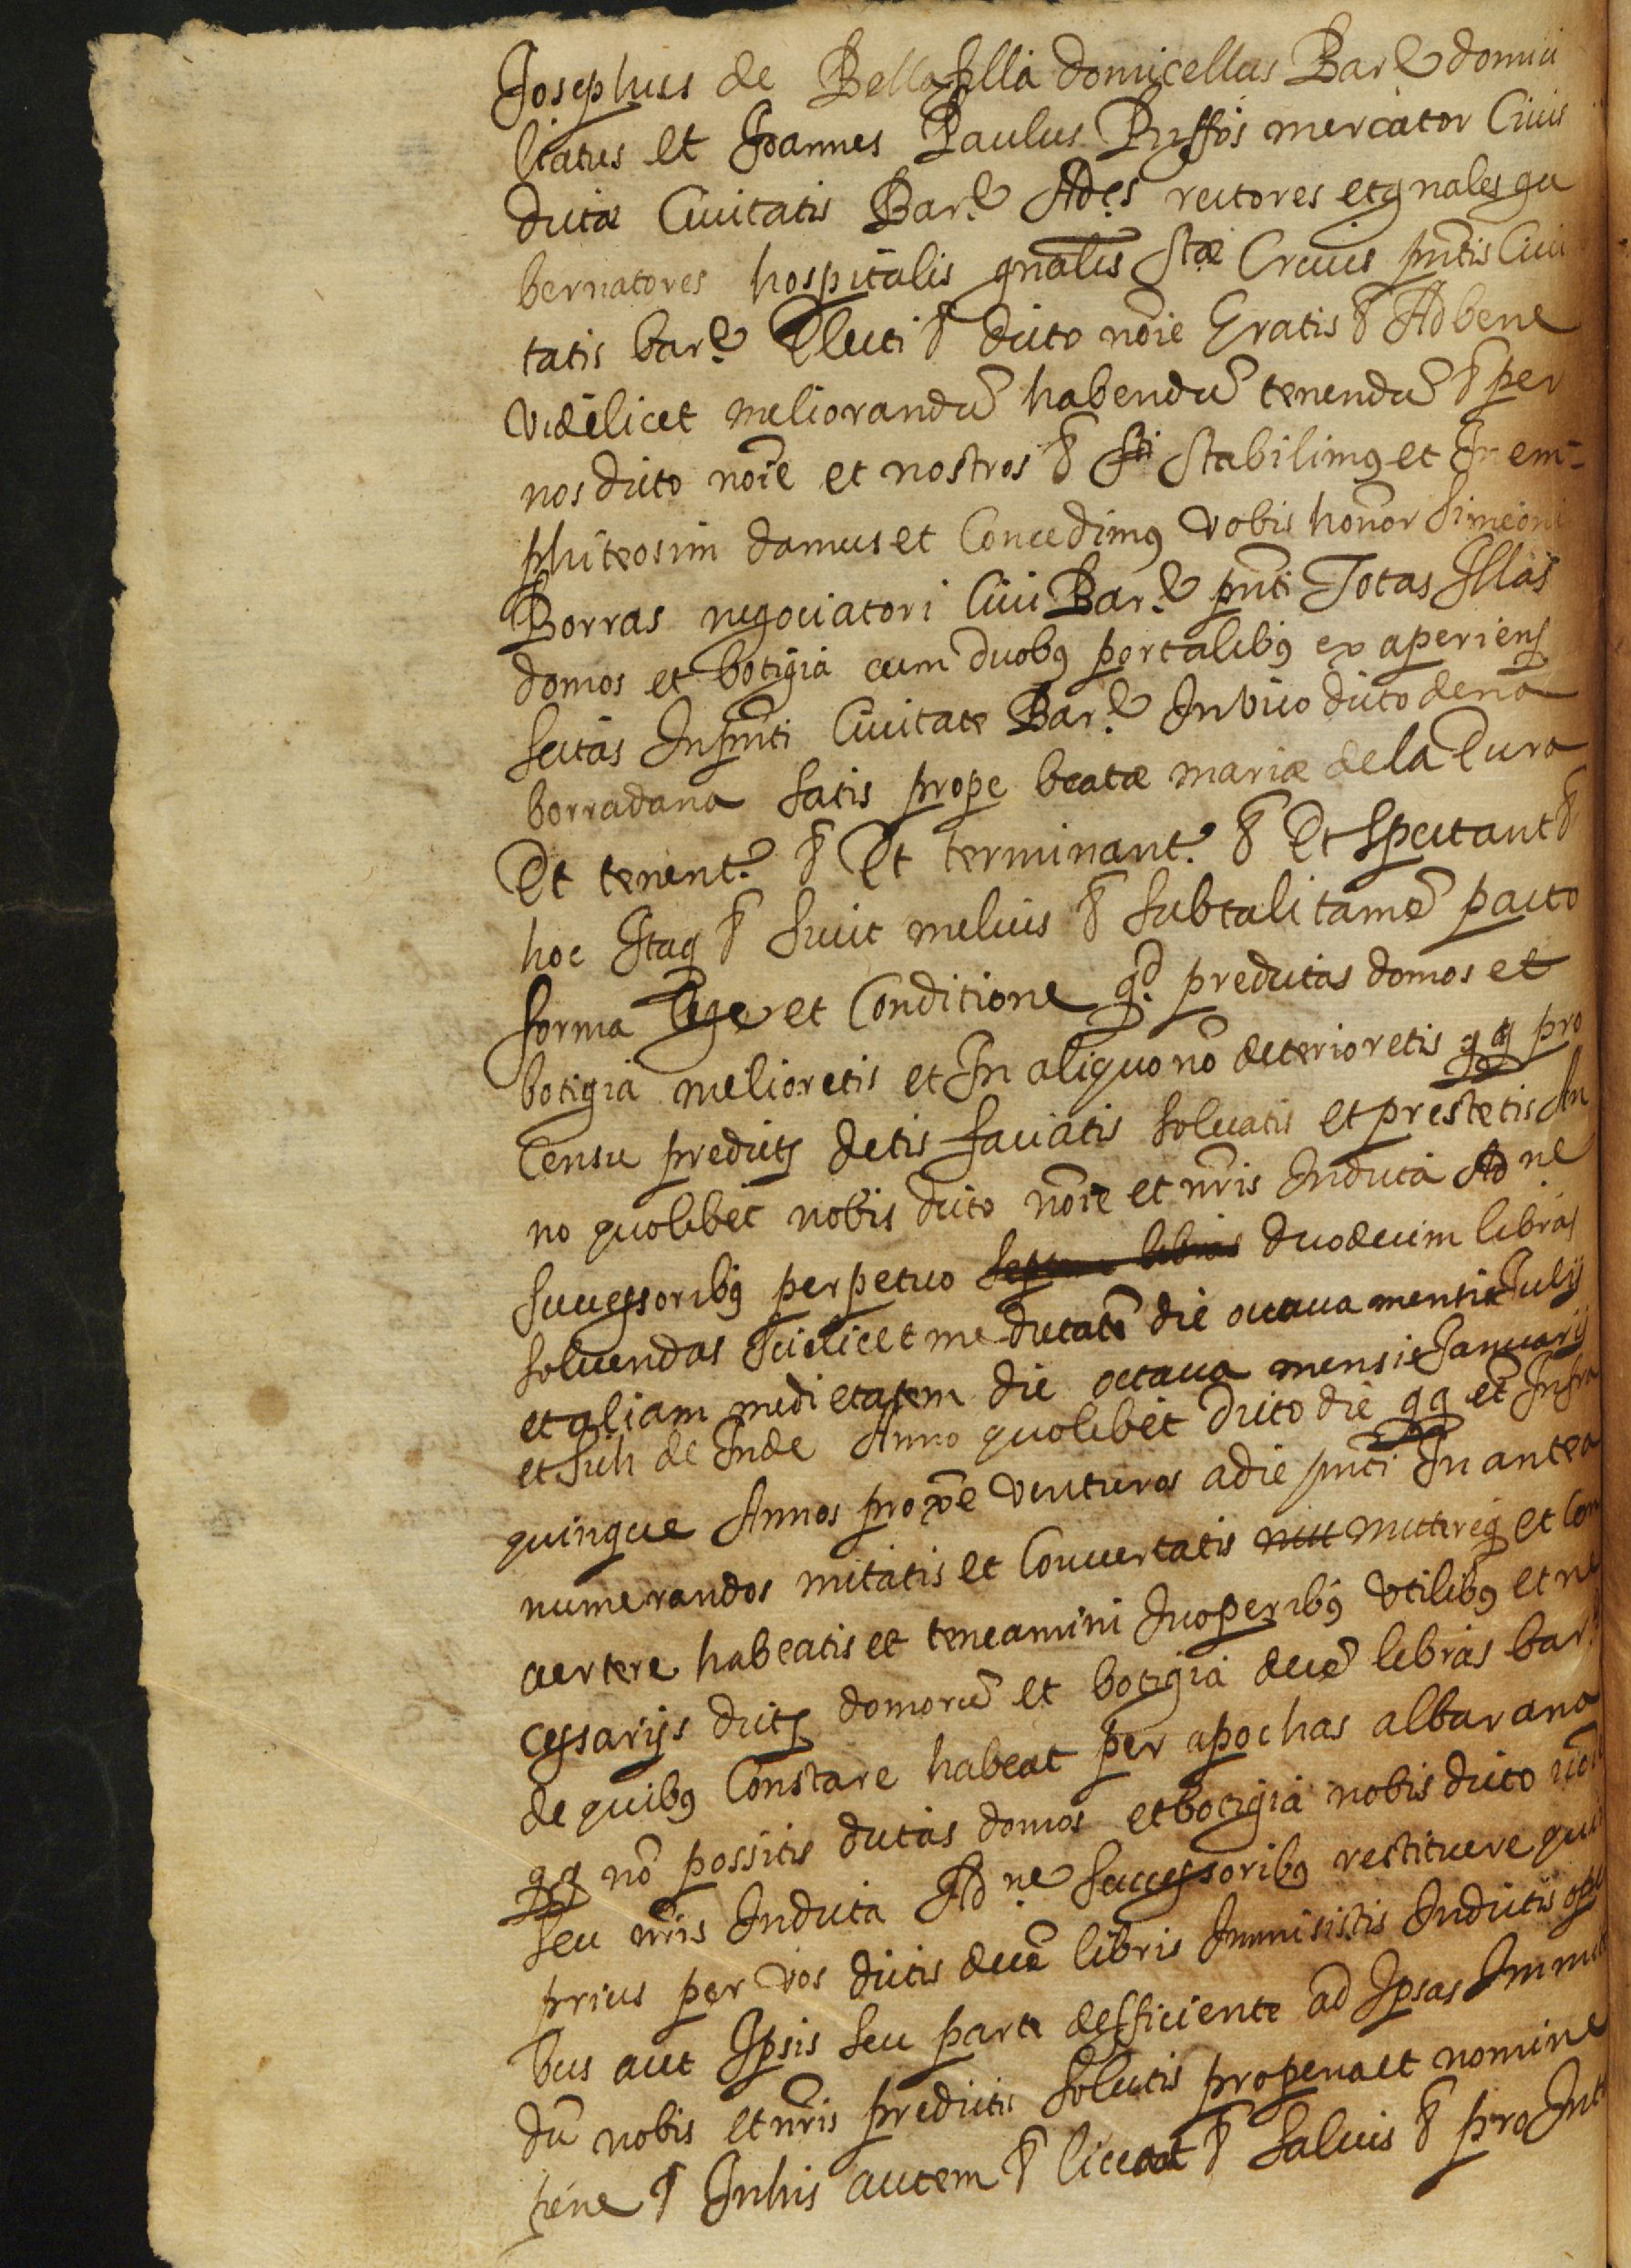 Josephus de Bellafilla domicellus Bar.e domici
liatus et Joannes Paulus Ruffos mercator Civis
dictæ Civitatis Bar.e Ad.es rectores et gnales gu
bernatores hospitalis gnalis Stæ Crucis pntis Civi
tatis bar.e Electi & dicto noie Gratis & Ad bene
videlicet meliorandũ habendũ tenendũ & per
nos dicto noie et nostros & Sti Stabilimꝯ et In em-
phiteosim damus et Concedimꝯ vobis honor Simeoni
Borras negociatori Civi Bar.e pnti Totas Illas
domos et botigia cum duobꝯ portalibꝯ ex aperienꝭ
Scitas In pnti Civitate Bar.e In vico dicto de na
borradana satis prope beatæ mariæ de la Cura
Et tenent.r & Et terminant.r & Et Spectant &
hoc Itaq & Sicut melius & Sub tali tamẽ pacto
forma lege et Conditione qd. predictas domos et
botigia melioretis et In aliquo nõ deterioretis qq pro
Censu predictꝭ detis faciatis solvatis et prestetis An
no quolibet nobis dicto noie et nris In dicta Ad.ne
Successoribꝯ perpetuo septem libras duodecim libras
solvendas Scilicet medietatẽ die octava mensis Julij
et aliam medietatem die octava mensis Januarij
et Sich de Inde Anno quolibet dicto die qq et Infra
quinque Annos proxe venturos a die pnti In antea
numerandos mitatis et Convertatis mitt mittereq et Con
vertere habeatis et teneamini In operibꝯ utilibꝯ et ne
cessarijs dictꝭ domorũ et botigia decẽ libras bar.e
de quibꝯ Constare habeat per apochas albarana
qq nõ possitis dictas domos et botigia nobis dicto noie
seu nris In dicta Ad.ne Successoribꝯ restituere qui
prius per vos dictis decẽ libris Immisistis In dictis ope
bus aut Ipsis seu parte defficiente ad Ipsas Immite
dũ nobis et nris predictis solutis pro pena et nomine
pene & In his autem & liceat & Salvis & pro Int